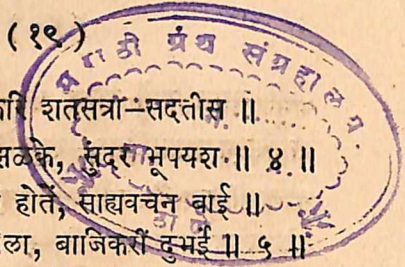 ( १९ )
मराठी ग्रंथ संग्रहालय
शतसत्रा-सदतीस ॥
सळके, सुंदर भूपयश ॥ ४ ॥
होतें, साह्यवचन बाई ॥
ला, बाजिकरीं दुभई ॥ ५ ॥